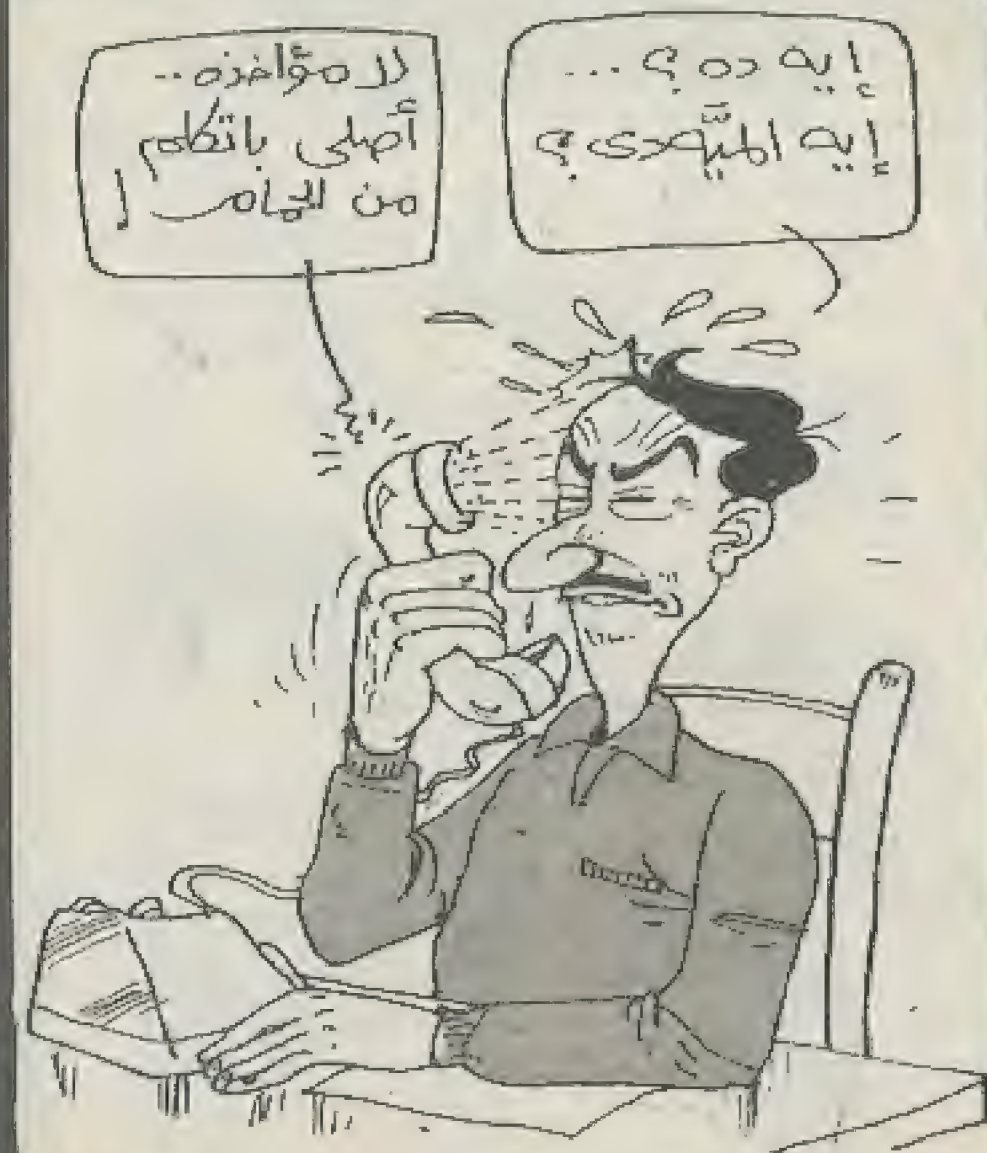 إيه ده ؟ ...
إيه الميّه دى ؟
لا مؤاخذه ..
أصلى باتكلم
من الحمام !